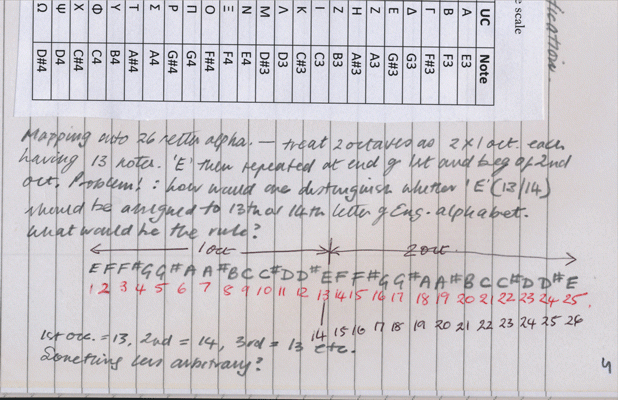 e scale
fication.
UC Ω Ψ Χ Φ Υ Τ Σ Ρ Π Ο Ξ Ν Μ Λ Κ Ι Z Z Η Ε Δ Γ Β Α
Note D#4 D4 C#4 C4 B4 A#4 A4 G#4 G4 F#4 F4 E4 D#3 D3 C#3 C3 B3 A3 A#3 G#3 G3 F#3 F3 E3
Mapping onto 26 letter alpha. – treat 2 octaves as 2 x 1 oct. each
having 13 notes. 'E' then repeated at end of 1st and beg of 2nd
oct. Problem! : how would one distinguish whether 'E' (13/14)
should be assigned to 13th or 14th letter of Eng. alphabet.
What would be the rule?
1 oct 2 oct
E F F# G G# A A# B C C# D D# E F F# G G# A A# B C C# D D# E
1 2 3 4 5 6 7 8 9 10 11 12 13 14 15 16 17 18 19 20 21 22 23 24 25.
14 15 16 17 18 19 20 21 22 23 24 25 26
1st occ. = 13, 2nd = 14, 3rd = 13 etc.
Something less arbitrary?
4